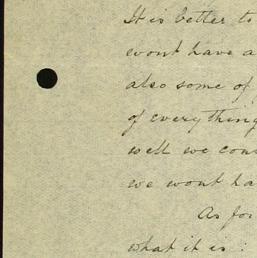 It is better to
wont have a
also some of
of everything
well we cou
we wont ha
As for
what it is :